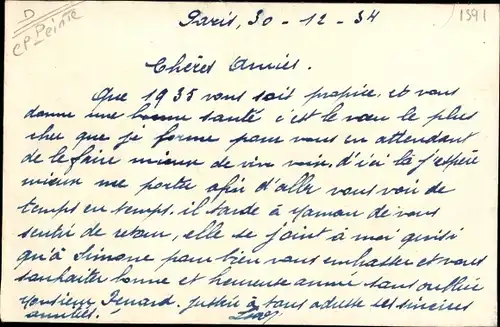 D
CP_Peinte
1591
Paris, 30 - 12 - 34
Chères Amies.
Que 1935 vous soit propice, et vous
donne une bonne santé c'est le vœu le plus
cher que je forme pour vous en attendant
de le faire mieux de vive voix, d'ici là j'espère
mieux me porter afin d'aller vous voir de
temps en temps. il tarde à Maman de vous
sentir de retour, elle se joint à moi ainsi
qu'à Simone pour bien vous embrasser et vous
souhaiter bonne et heureuse année sans oublier
Monsieur Fenard. à tous adresse ses sincères
amitiés.